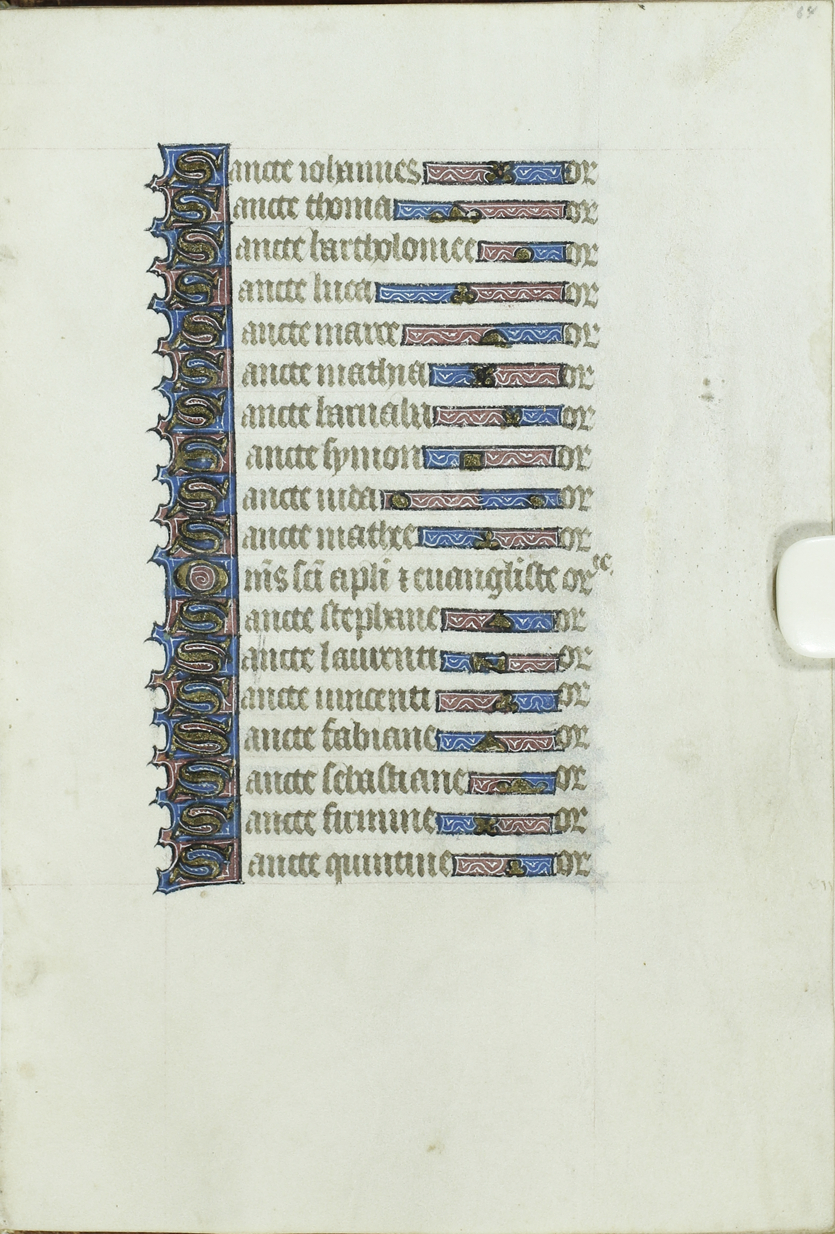 64
Sancte iohannes or
Sancte thoma or
Sancte bartholomee or
Sancte luca or
Sancte marce or
Sancte mathia or
Sancte barnaba or
Sancte symon or
Sancte iuda or
Sancte mathee or
Om̄s sc̄i apl̄i ⁊ euangliste or
Sancte stephane or
Sancte laurenti or
Sancte uincenti or
Sancte fabiane or
Sancte sebastiane or
Sancte firmine or
Sancte quintine or